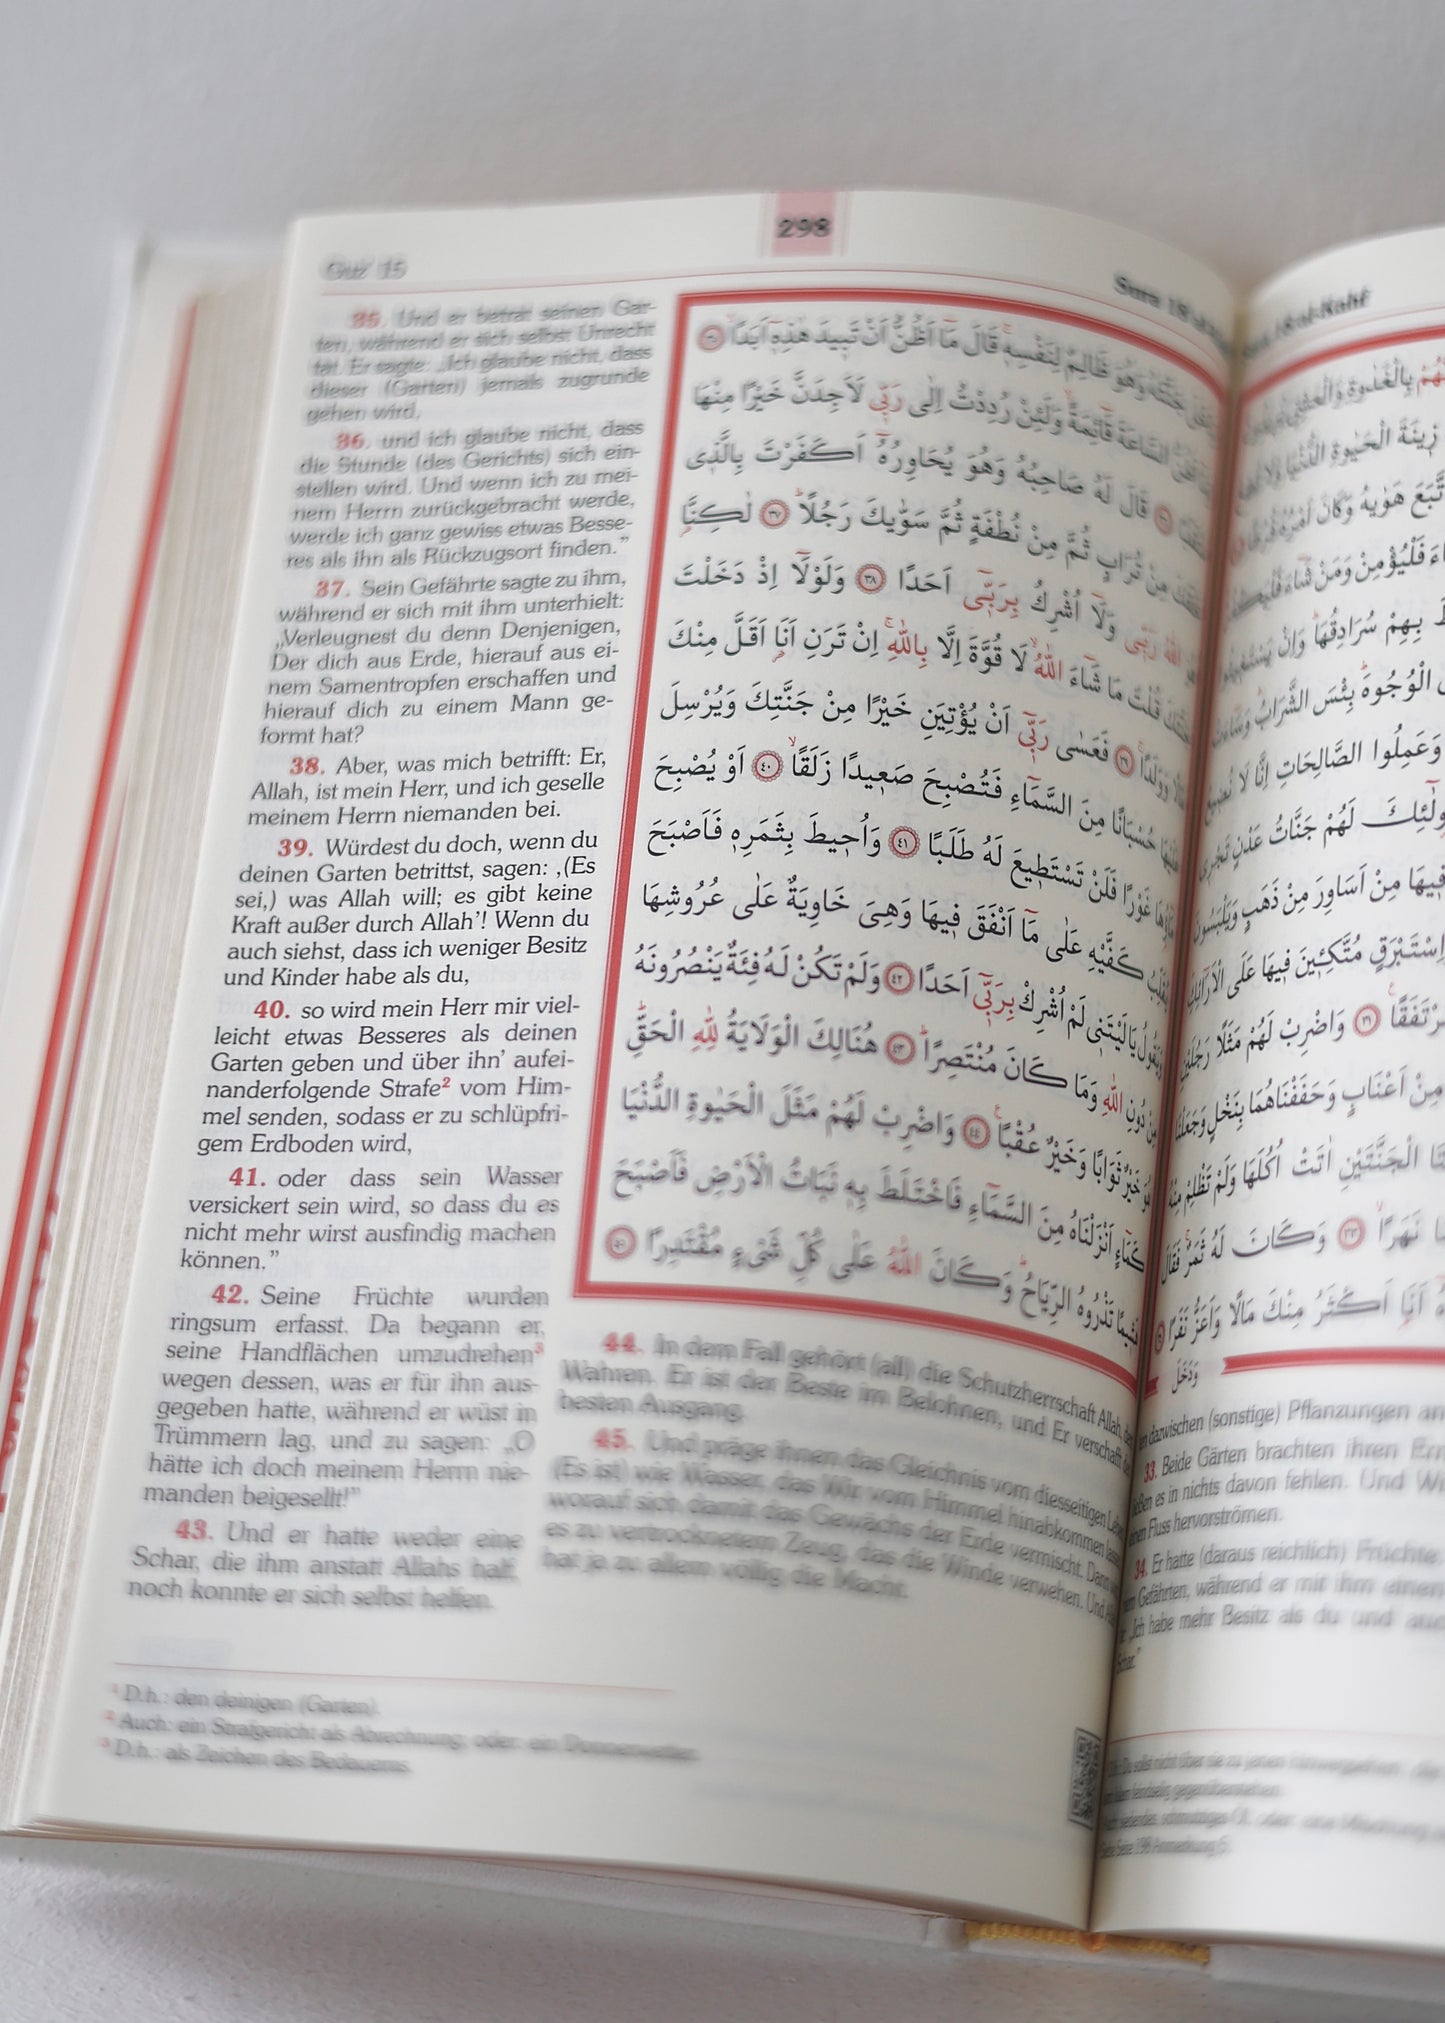 298
Ǧuzʾ 15
35. Und er betrat seinen Gar-
ten, während er sich selbst Unrecht
tat. Er sagte: „Ich glaube nicht, dass
dieser (Garten) jemals zugrunde
gehen wird,
36. und ich glaube nicht, dass
die Stunde (des Gerichts) sich ein-
stellen wird. Und wenn ich zu mei-
nem Herrn zurückgebracht werde,
werde ich ganz gewiss etwas Besse-
res als ihn als Rückzugsort finden.”
37. Sein Gefährte sagte zu ihm,
während er sich mit ihm unterhielt:
„Verleugnest du denn Denjenigen,
Der dich aus Erde, hierauf aus ei-
nem Samentropfen erschaffen und
hierauf dich zu einem Mann ge-
formt hat?
38. Aber, was mich betrifft: Er,
Allah, ist mein Herr, und ich geselle
meinem Herrn niemanden bei.
39. Würdest du doch, wenn du
deinen Garten betrittst, sagen: ‚(Es
sei,) was Allah will; es gibt keine
Kraft außer durch Allah’! Wenn du
auch siehst, dass ich weniger Besitz
und Kinder habe als du,
40. so wird mein Herr mir viel-
leicht etwas Besseres als deinen
Garten geben und über ihn’ aufei-
nanderfolgende Strafe² vom Him-
mel senden, sodass er zu schlüpfri-
gem Erdboden wird,
41. oder dass sein Wasser
versickert sein wird, so dass du es
nicht mehr wirst ausfindig machen
können.”
42. Seine Früchte wurden
ringsum erfasst. Da begann er,
seine Handflächen umzudrehen³
wegen dessen, was er für ihn aus-
gegeben hatte, während er wüst in
Trümmern lag, und zu sagen: „O
hätte ich doch meinem Herrn nie-
manden beigesellt!”
43. Und er hatte weder eine
Schar, die ihm anstatt Allahs half,
noch konnte er sich selbst helfen.
جَنَّتَهُ وَهُوَ ظَالِمٌ لِنَفْسِهِۚ قَالَ مَٓا اَظُنُّ اَنْ تَب۪يدَ هٰذِه۪ٓ اَبَدًا ٣٥
السَّاعَةَ قَٓائِمَةً وَلَئِنْ رُدِدْتُ اِلٰى رَبّ۪ي لَاَجِدَنَّ خَيْرًا مِنْهَا
٣٦ قَالَ لَهُ صَاحِبُهُ وَهُوَ يُحَاوِرُهُٓ اَكَفَرْتَ بِالَّذ۪ي
مِنْ تُرَابٍ ثُمَّ مِنْ نُطْفَةٍ ثُمَّ سَوّٰيكَ رَجُلًاۜ ٣٧ لٰكِنَّا۬
اللّٰهُ رَبّ۪ي وَلَٓا اُشْرِكُ بِرَبّ۪ٓي اَحَدًا ٣٨ وَلَوْلَٓا اِذْ دَخَلْتَ
جَنَّتَكَ قُلْتَ مَا شَٓاءَ اللّٰهُۙ لَا قُوَّةَ اِلَّا بِاللّٰهِۚ اِنْ تَرَنِ اَنَا۬ اَقَلَّ مِنْكَ
وَوَلَدًاۚ ٣٩ فَعَسٰى رَبّ۪ٓي اَنْ يُؤْتِيَنِ خَيْرًا مِنْ جَنَّتِكَ وَيُرْسِلَ
عَلَيْهَا حُسْبَانًا مِنَ السَّمَٓاءِ فَتُصْبِحَ صَع۪يدًا زَلَقًاۙ ٤٠ اَوْ يُصْبِحَ
مَٓاؤُ۬هَا غَوْرًا فَلَنْ تَسْتَط۪يعَ لَهُ طَلَبًا ٤١ وَاُح۪يطَ بِثَمَرِه۪ فَاَصْبَحَ
يُقَلِّبُ كَفَّيْهِ عَلٰى مَٓا اَنْفَقَ ف۪يهَا وَهِيَ خَاوِيَةٌ عَلٰى عُرُوشِهَا
وَيَقُولُ يَا لَيْتَن۪ي لَمْ اُشْرِكْ بِرَبّ۪ٓي اَحَدًا ٤٢ وَلَمْ تَكُنْ لَهُ فِئَةٌ يَنْصُرُونَهُ
مِنْ دُونِ اللّٰهِ وَمَا كَانَ مُنْتَصِرًاۜ ٤٣ هُنَالِكَ الْوَلَايَةُ لِلّٰهِ الْحَقِّۜ
هُوَ خَيْرٌ ثَوَابًا وَخَيْرٌ عُقْبًا۟ ٤٤ وَاضْرِبْ لَهُمْ مَثَلَ الْحَيٰوةِ الدُّنْيَا
كَمَٓاءٍ اَنْزَلْنَاهُ مِنَ السَّمَٓاءِ فَاخْتَلَطَ بِه۪ نَبَاتُ الْاَرْضِ فَاَصْبَحَ
هَش۪يمًا تَذْرُوهُ الرِّيَاحُۜ وَكَانَ اللّٰهُ عَلٰى كُلِّ شَيْءٍ مُقْتَدِرًا ٤٥
44. In dem Fall gehört (all) die Schutzherrschaft Allah, dem
Wahren. Er ist der Beste im Belohnen, und Er verschafft den
besten Ausgang.
45. Und präge ihnen das Gleichnis vom diesseitigen Leben
(Es ist) wie Wasser, das Wir vom Himmel hinabkommen lassen
worauf sich damit das Gewächs der Erde vermischt. Dann
es zu vertrocknetem Zeug, das die Winde verwehen. Und
hat ja zu allem völlig die Macht.
¹ D.h.: den deinigen (Garten).
² Auch: ein Strafgericht als Abrechnung; oder: ein Donnerwetter.
³ D.h.: als Zeichen des Bedauerns.
Sura 18 al-Kahf
بِالْغَدٰوةِ وَالْعَشِيِّ
ز۪ينَةَ الْحَيٰوةِ الدُّنْيَا
هَوٰيهُ وَكَانَ اَمْرُهُ
فَلْيُؤْمِنْ وَمَنْ شَٓاءَ فَلْيَكْفُرْ
بِهِمْ سُرَادِقُهَاۜ وَاِنْ
الْوُجُوهَۜ بِئْسَ الشَّرَابُۜ وَسَٓاءَتْ
وَعَمِلُوا الصَّالِحَاتِ اِنَّا لَا
لَهُمْ جَنَّاتُ عَدْنٍ تَجْر۪ي
ف۪يهَا مِنْ اَسَاوِرَ مِنْ ذَهَبٍ وَيَلْبَسُونَ
مُتَّكِـ۪ٔينَ ف۪يهَا عَلَى الْاَرَٓائِكِۜ
٣١ وَاضْرِبْ لَهُمْ مَثَلًا رَجُلَيْنِ
مِنْ اَعْنَابٍ وَحَفَفْنَاهُمَا بِنَخْلٍ وَجَعَلْنَا
الْجَنَّتَيْنِ اٰتَتْ اُكُلَهَا وَلَمْ تَظْلِمْ مِنْهُ
نَهَرًاۙ ٣٣ وَكَانَ لَهُ ثَمَرٌۚ فَقَالَ
اَنَا۬ اَكْثَرُ مِنْكَ مَالًا وَاَعَزُّ نَفَرًا
وَدَخَلَ
dazwischen (sonstige) Pflanzungen
33. Beide Gärten brachten ihren
es in nichts davon fehlen. Und
Fluss hervorströmen.
34. Er hatte (daraus reichlich) Früchte
Gefährten, während er mit ihm einen
„Ich habe mehr Besitz als du und
Schar.”